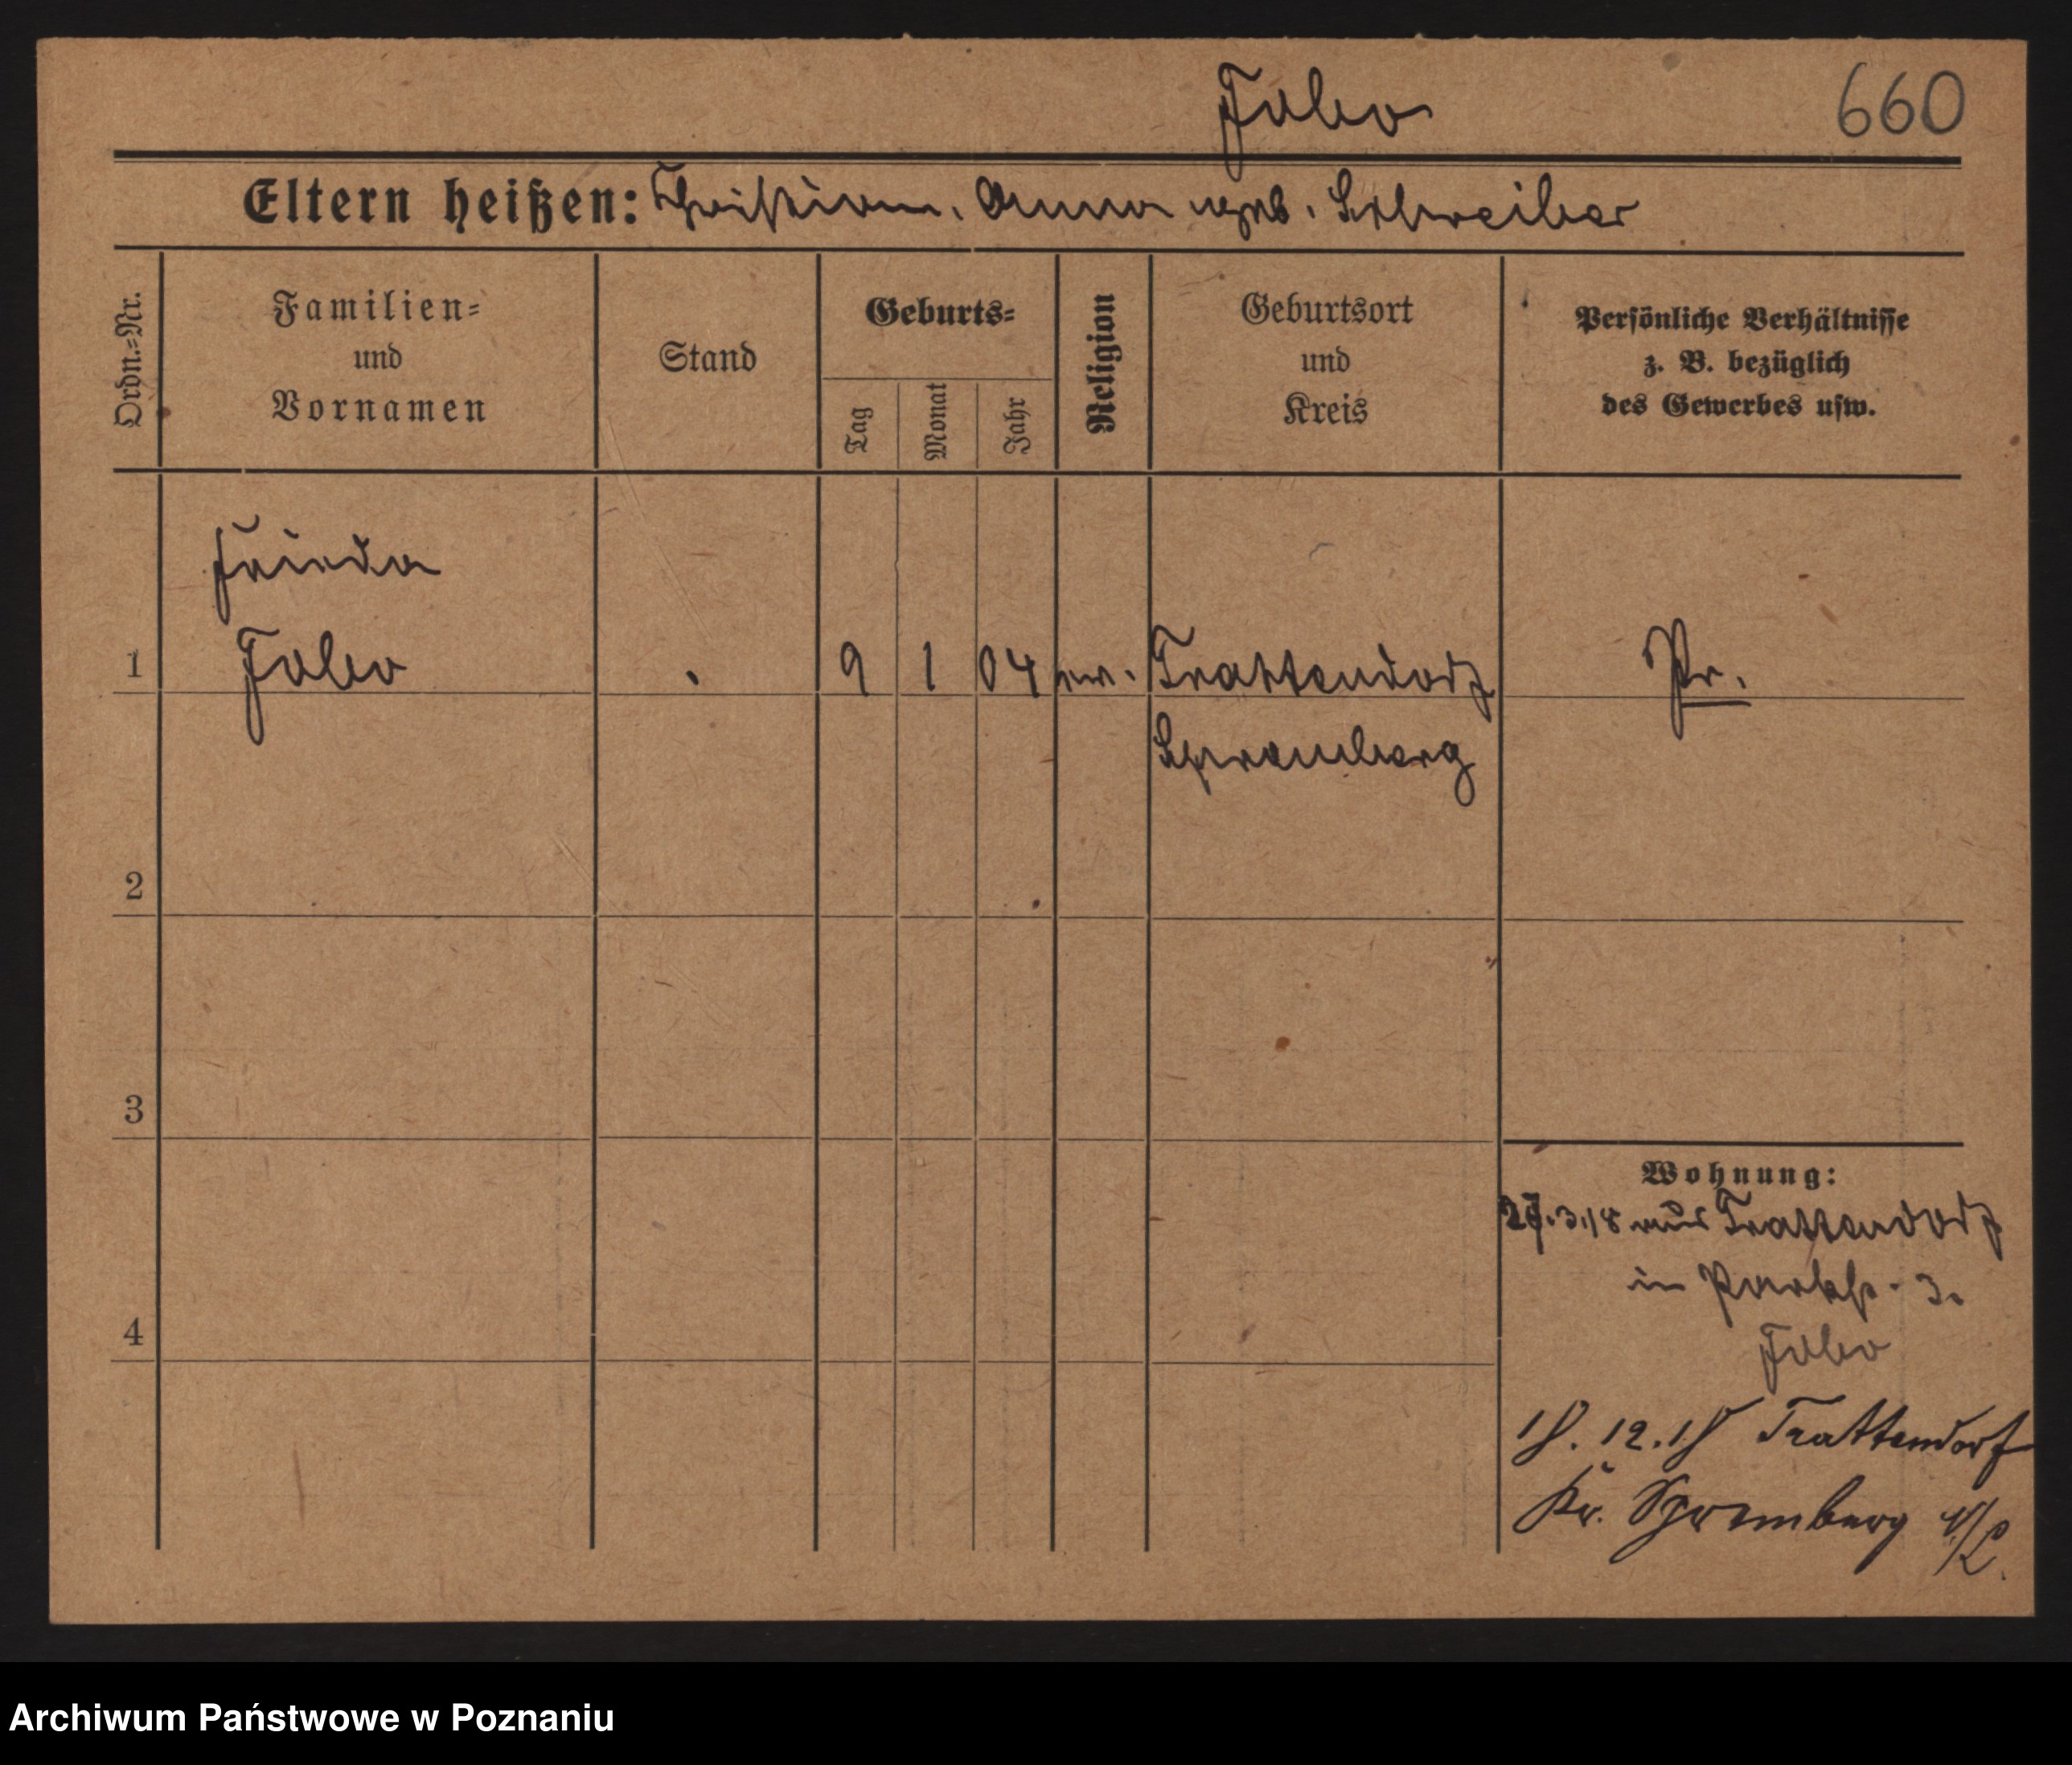 Jabo
660
Eltern heißen: Christian, Anna geb. Schreiber
Ordn.=Nr.
Familien=
und
Vornamen
Stand
Geburts=
Tag
Monat
Jahr
Religion
Geburtsort
und
Kreis
Persönliche Verhältnisse
z. B. bezüglich
des Gewerbes usw.
Frieda
1 Jabo 9 1 04 ev. Trattendorf Pr.
Spremberg
2
3
Wohnung:
.3.18 aus Trattendorf
in Parkstr. 3.
4
Jabo
18. 12. 18 Trattendorf
Kr. Spremberg N/L.
Archiwum Państwowe w Poznaniu